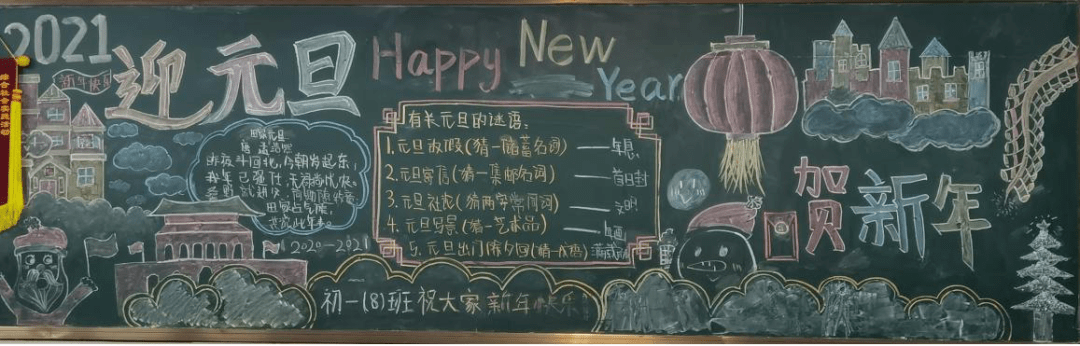 2021
新年快乐
迎元旦
Happy New Year
综合社会实践活动
田家元旦
唐 孟浩然
昨夜斗回北,今朝岁起东;
我年已强仕,无禄尚忧农。
田家占气候,
共说此年丰。
2020-2021
有关元旦的谜语:
1.元旦放假(猜一储蓄名词)——年息
2.元旦寄信(猜一集邮名词)——首日封
3.元旦社论(猜两字常用词)——文明
4.元旦写景(猜一艺术品)——年画
5.元旦出门除夕回(猜一成语)满载
贺新年
初一(8)班祝大家新年快乐